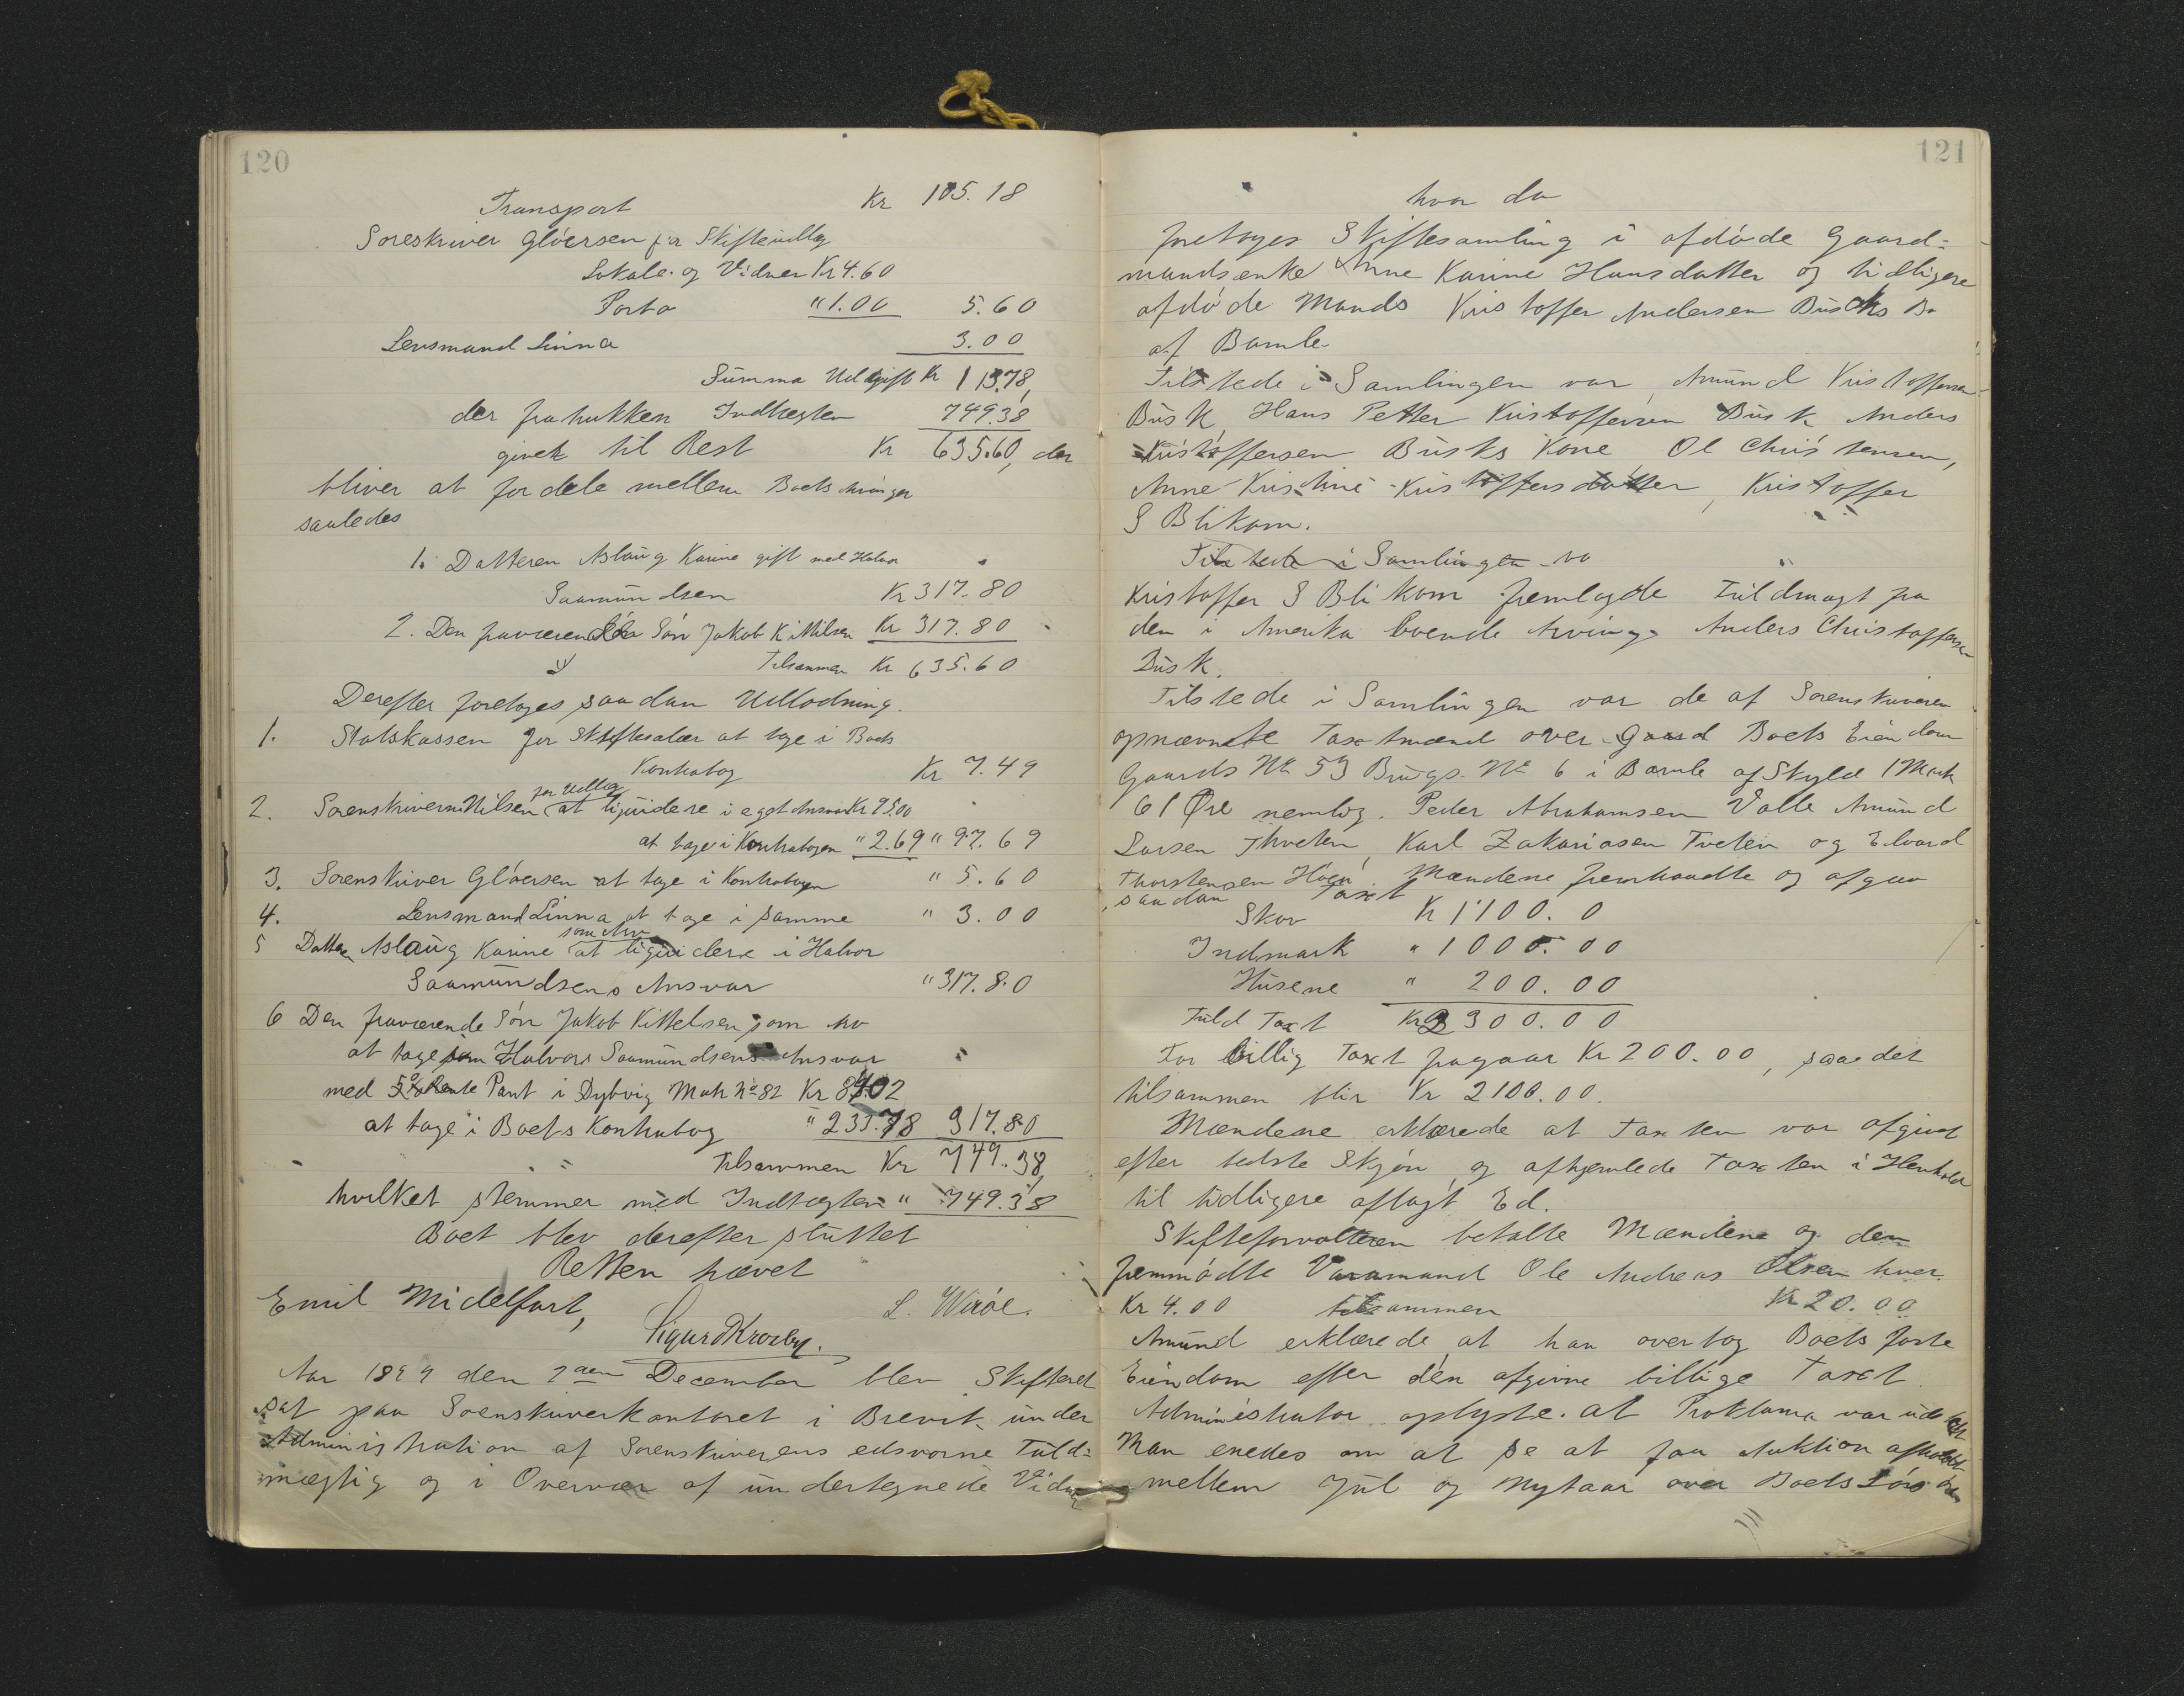 120
Transport Kr 105.18
Soreskriver Glöersen for Skifteudlæg
Lokale og Vidner Kr 4.60
Porto " 1.00 5.60
Lensmand Linna 3.00
Summa Udgift Kr 113.78,
der fratrukken Indtægten 749.38
giver til Rest Kr 635.60, der
bliver at fordele mellem Boets Arvinger
saaledes
1. Datteren Aslaug Karine gift med Halvor
Saamundsen Kr 317.80
2. Den fraværende Sön Jakob Kittilsen Kr 317.80
Tilsammen Kr 635.60
Derefter foretoges saadan Udlodning.
1. Statskassen for Skiftesalær at tage i Boets
Kontrabog Kr 7.49
2. Sorenskriver Nilsen for Udlæg at liquidere i eget Ansvar Kr 95.00
at tage i Kontrabogen " 2.69 " 97.69
3. Sorenskriver Glöersen at tage i Kontrabogen " 5.60
4. Lensmand Linna at tage i samme " 3.00
5 Datter Aslaug Karine som Arv at liquidere i Halvor
Saamundsens Ansvar " 317.80
6 Den fraværende Sön Jakob Kittelsen som Arv
at tage i Halvors Saamundsens Ansvar
med 5% Rente Pant i Dybvig Matr No 82 Kr 84.02
at tage i Boets Kontrabog " 233.78 317.80
Tilsammen Kr 749.38,
hvilket stemmer med Indtægten " 749.38
Boet blev derefter sluttet
Retten hævet
Emil Midelfart, L. Wiröe.
Sigurd Krosby.
Aar 1899 den December blev Skifteret
sat paa Sorenskriverkontoret i Brevik under
Administration af Sorenskriverens edsvorne Fuld-
mægtig og i Overvær af undertegnede Vidner
121
hvor da
foretoges Skiftesamling i afdöde Gaard-
mandsenke Anne Karine Hansdatter og tidligere
afdöde Mands Kristoffer Andersen Busks Bo
af Bamle
Tilstede i Samlingen var Amund Kristoffersen
Busk, Hans Petter Kristoffersen Busk Anders
Kristoffersen Busks Kone Ol Christensen,
Anne Kristine Kristoffersdatter, Kristoffer
S Blikom.
Tilstede i Samlingen va
Kristoffer S Blikom fremlagde Fuldmagt fra
den i Amerika boende Arving Anders Christoffersen
Busk.
Tilstede i Samlingen var de af Sorenskriveren
opnævnte Taxtmænd over Gaard Boets Eiendom
Gaards No 53 Brugs. No 6 i Bamle af Skyld 1 Mark
61 Øre nemlig. Peder Abrahamsen Valle Amund
Larsen Thveten, Karl Zakariasen Tveten og Edvard
Thorstensen Höen. Mændene fremhandlte og afgav
saadan Taxt
Skov Kr 1100.0
Indmark " 1000.00
Husene " 200.00
Fuld Taxt Kr 2300.00
For billig Taxt fragaar Kr 200.00, saa det
tilsammen blir Kr 2100.00.
Mændene erklærede at Taxten var afgivet
efter bedste Skjön og afhjemlede Taxten i Henhold
til tidligere aflagt Ed.
Skifteforvalteren betalte Mændene og den
fremmödte Varamand Ole Andreas Olsen hver
Kr 4.00 tilsammen Kr 20.00
Amund erklærede at han overtog Boets faste
Eiendom efter den afgivne billige Taxt.
Administrator oplyste at Proklama var udstedt
Man enedes om at se at faa Auktion afholdt
mellem Jul og Nytaar over Boets Lösöre